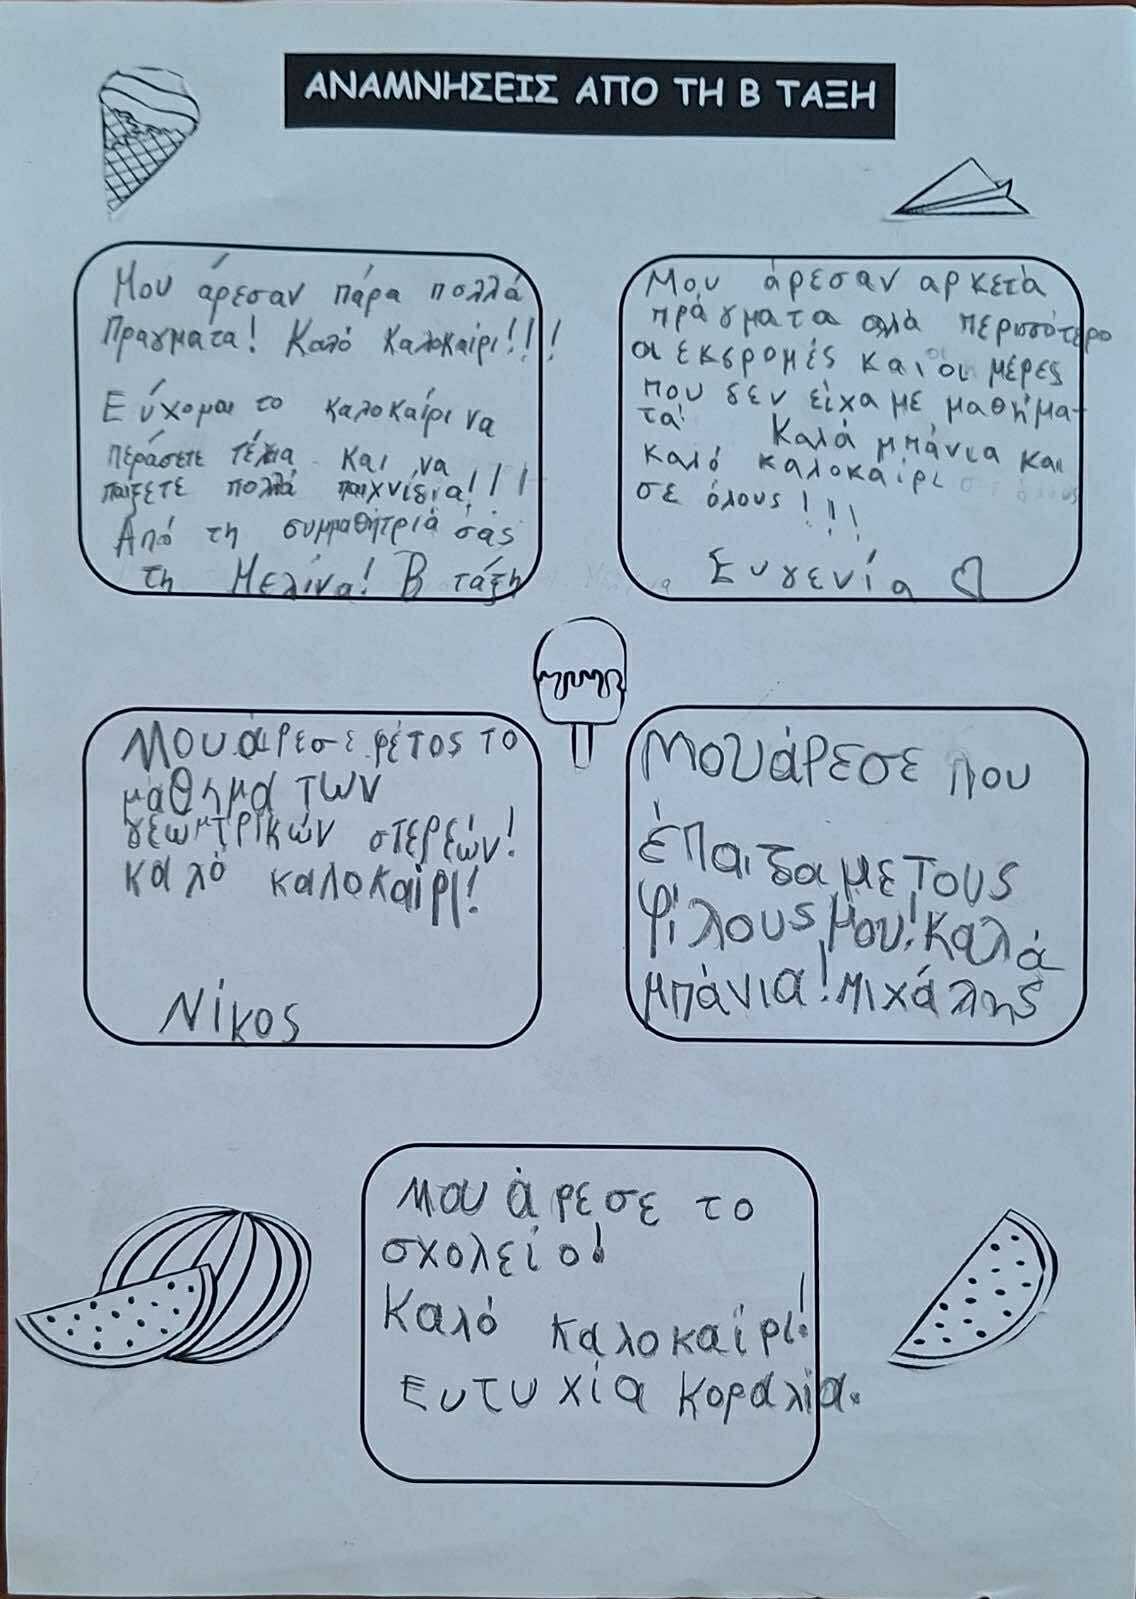 ΑΝΑΜΝΗΣΕΙΣ ΑΠΟ ΤΗ Β ΤΑΞΗ
Μου άρεσαν πάρα πολλά
Πράγματα! Καλό Καλοκαίρι!!!
Εύχομαι το καλοκαίρι να
περάσετε τέλεια και να
παίξετε πολλά παιχνίδια!!!
Από τη συμμαθήτριά σας
τη Μελίνα! Β τάξη
Μου άρεσαν αρκετά
πράγματα αλλά περισσότερο
οι εκδρομές και οι μέρες
που δεν είχαμε μαθήμα-
τα! Καλά μπάνια και
καλό καλοκαίρι
σε όλους!!!
Ευγενία
Μου άρεσε φέτος το
μάθημα των
γεωμτρικών στερεών!
καλό καλοκαίρι!
Νίκος
Μου άρεσε που
έπαιζα με τους
φίλους μου! Καλά
μπάνια! Μιχάλης
Μου άρεσε το
σχολείο!
Καλό καλοκαίρι!
Ευτυχία Κοραλία.